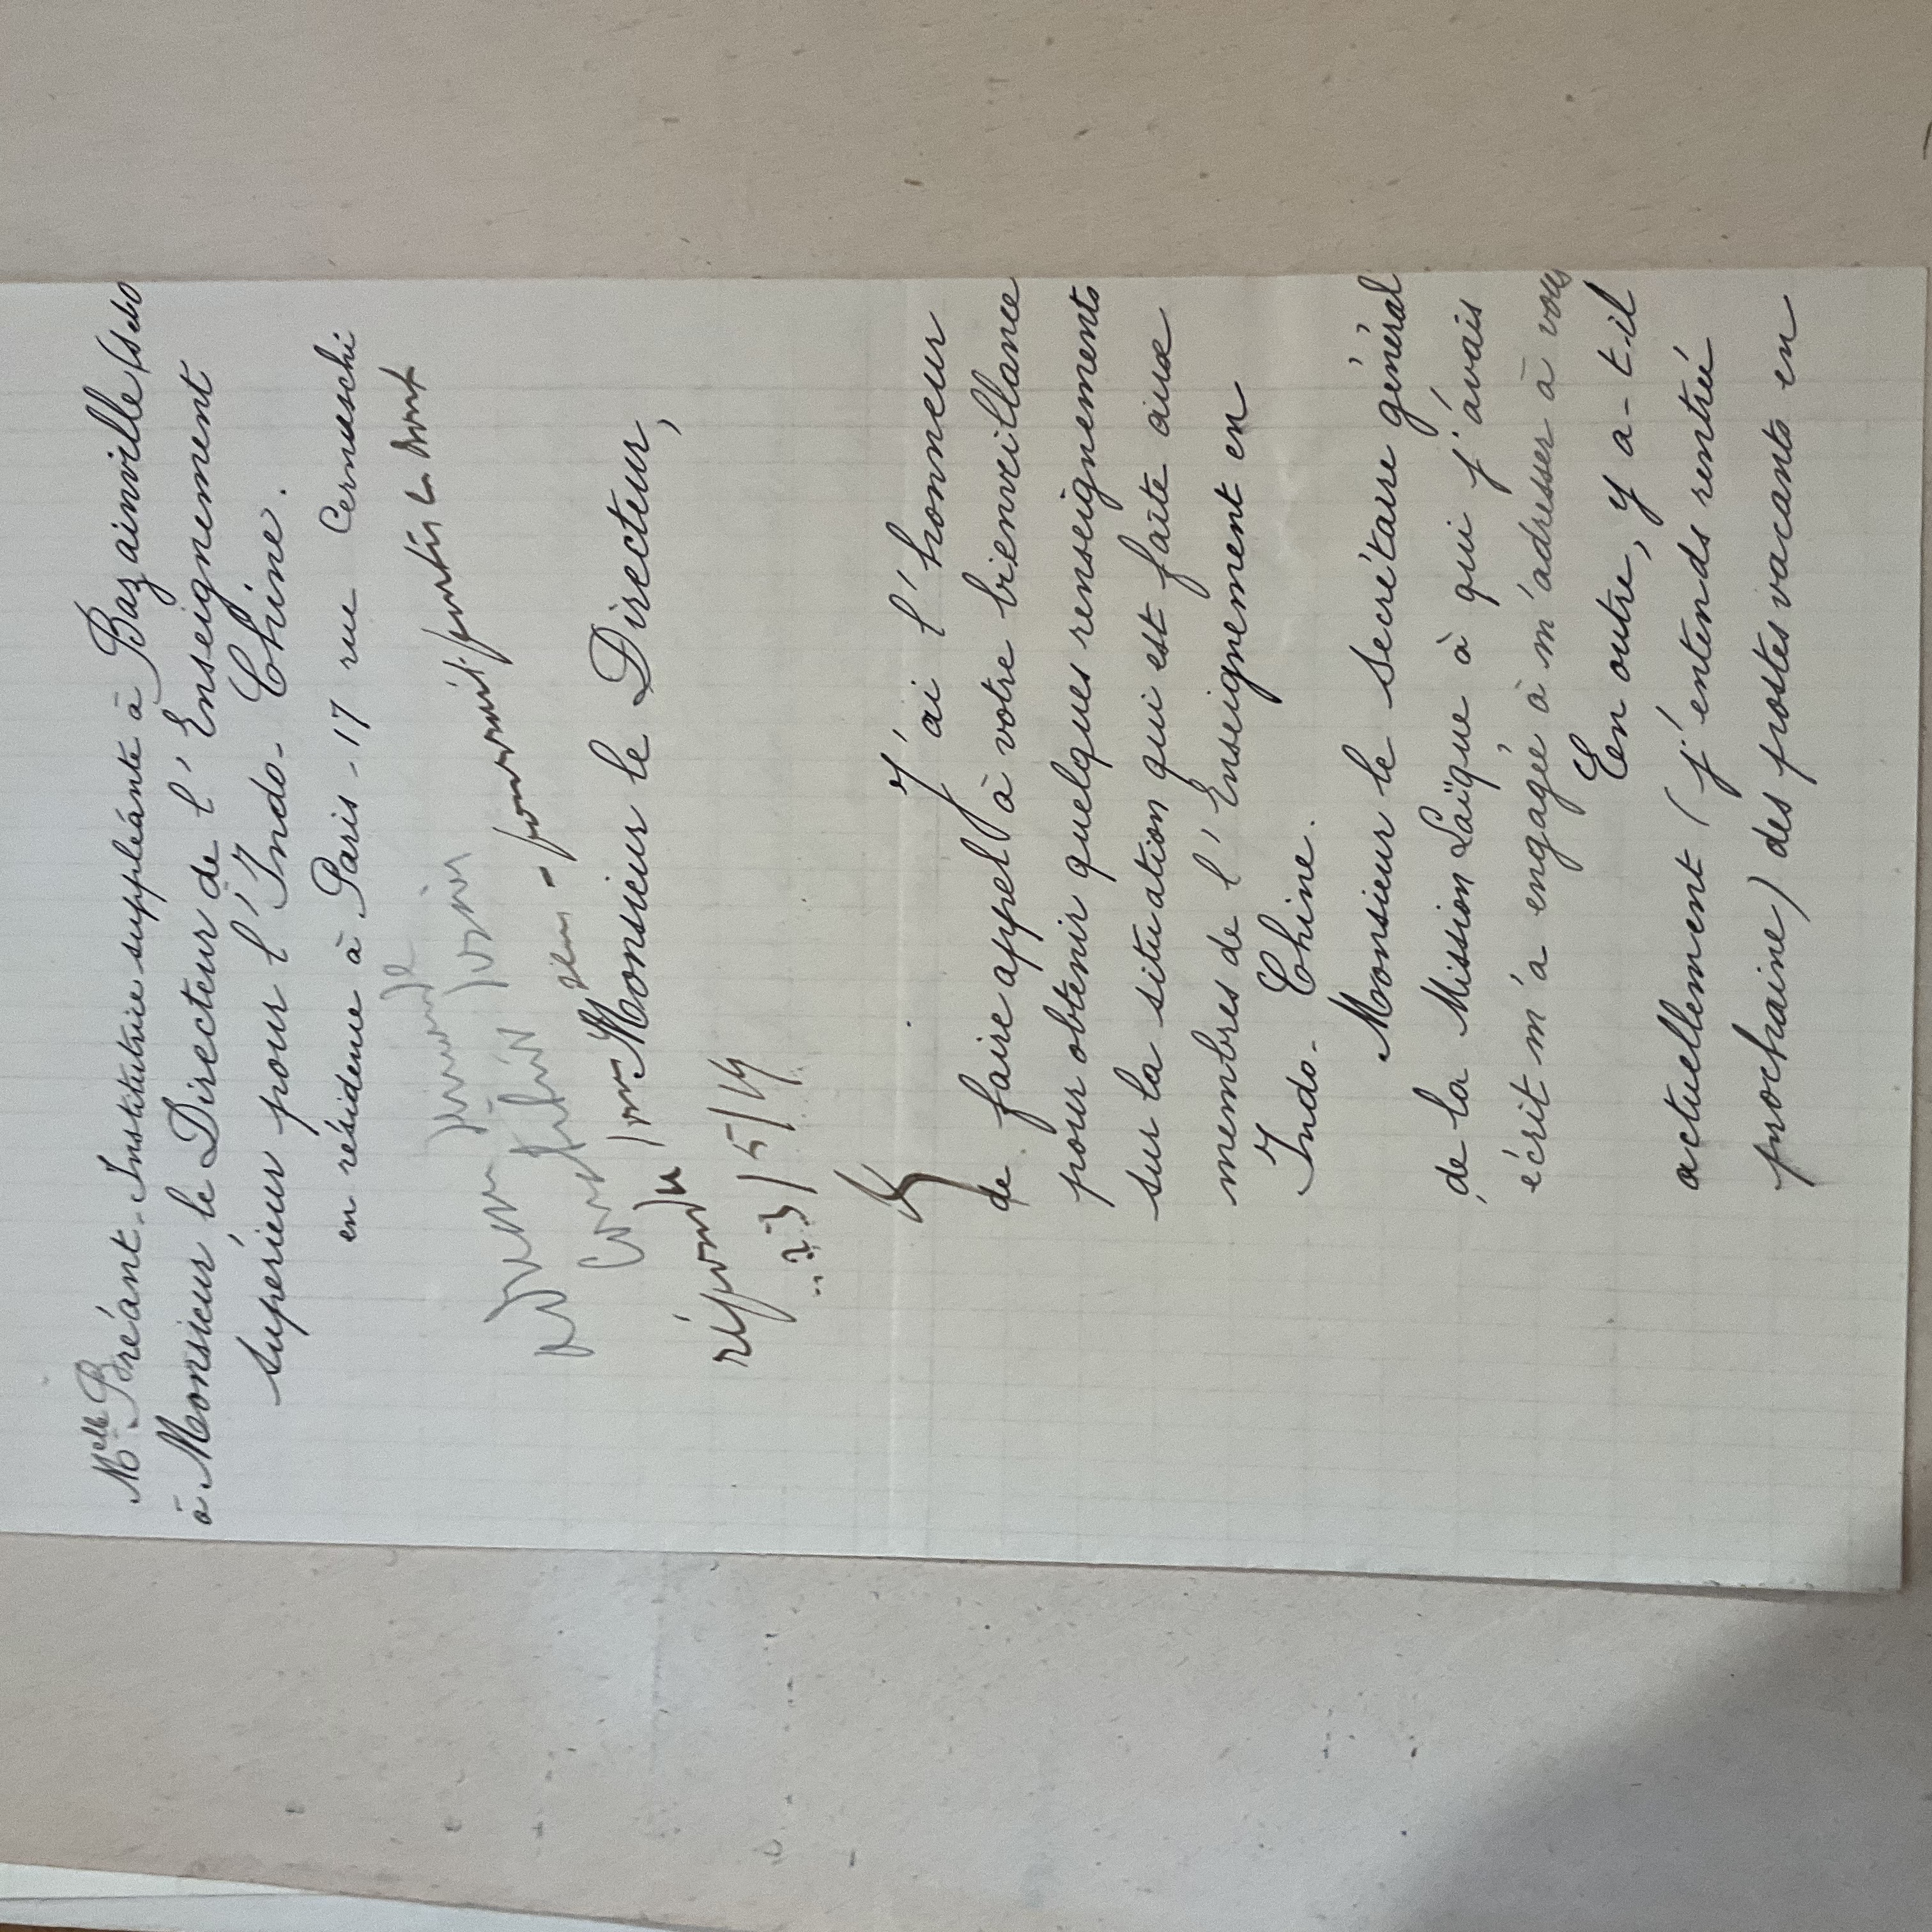 Melle Bréant - Institutrice suppléante à Bazainville (S et O
à Monsieur le Directeur de l'Enseignement
supérieur pour l'Indo-Chine.
en résidence à Paris - 17 rue Cernuschi
Monsieur le Directeur,
répondu
23/5/14
J'ai l'honneur
de faire appel à votre bienveillance
pour obtenir quelques renseignements
sur la situation qui est faite aux
membres de l'Enseignement en
Indo-Chine.
Monsieur le secrétaire général
de la Mission Laïque à qui j'avais
écrit m'a engagée à m'adresser à vous
En outre, y a-t-il
actuellement (j'entends rentrée
prochaine) des postes vacants en